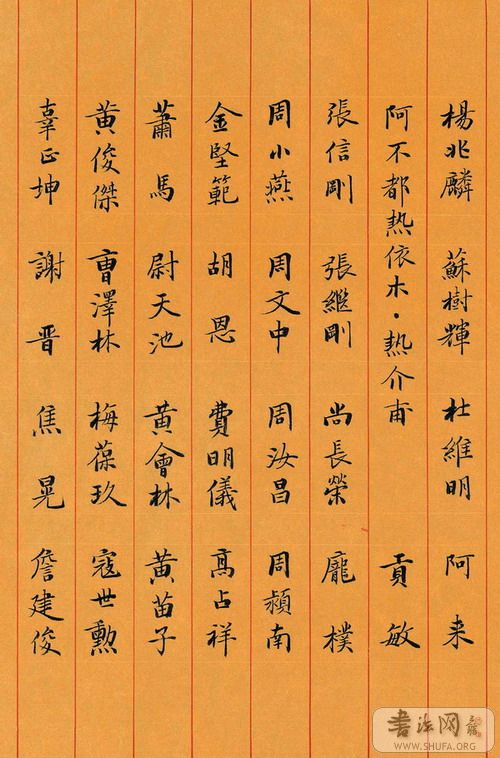 楊兆麟 蘇樹輝 杜維明 阿来
阿不都热依木·热介甫 貢敏
張信剛 張繼剛 尚長榮 龐樸
周小燕 周文中 周汝昌 周頻南
金堅範 胡恩 費明儀 高占祥
蕭馬 尉天池 黄會林 黄苗子
黄俊傑 曹澤林 梅葆玖 寇世勳
辜正坤 謝晋 焦晃 詹建俊
書法网
WWW.SHUFA.ORG